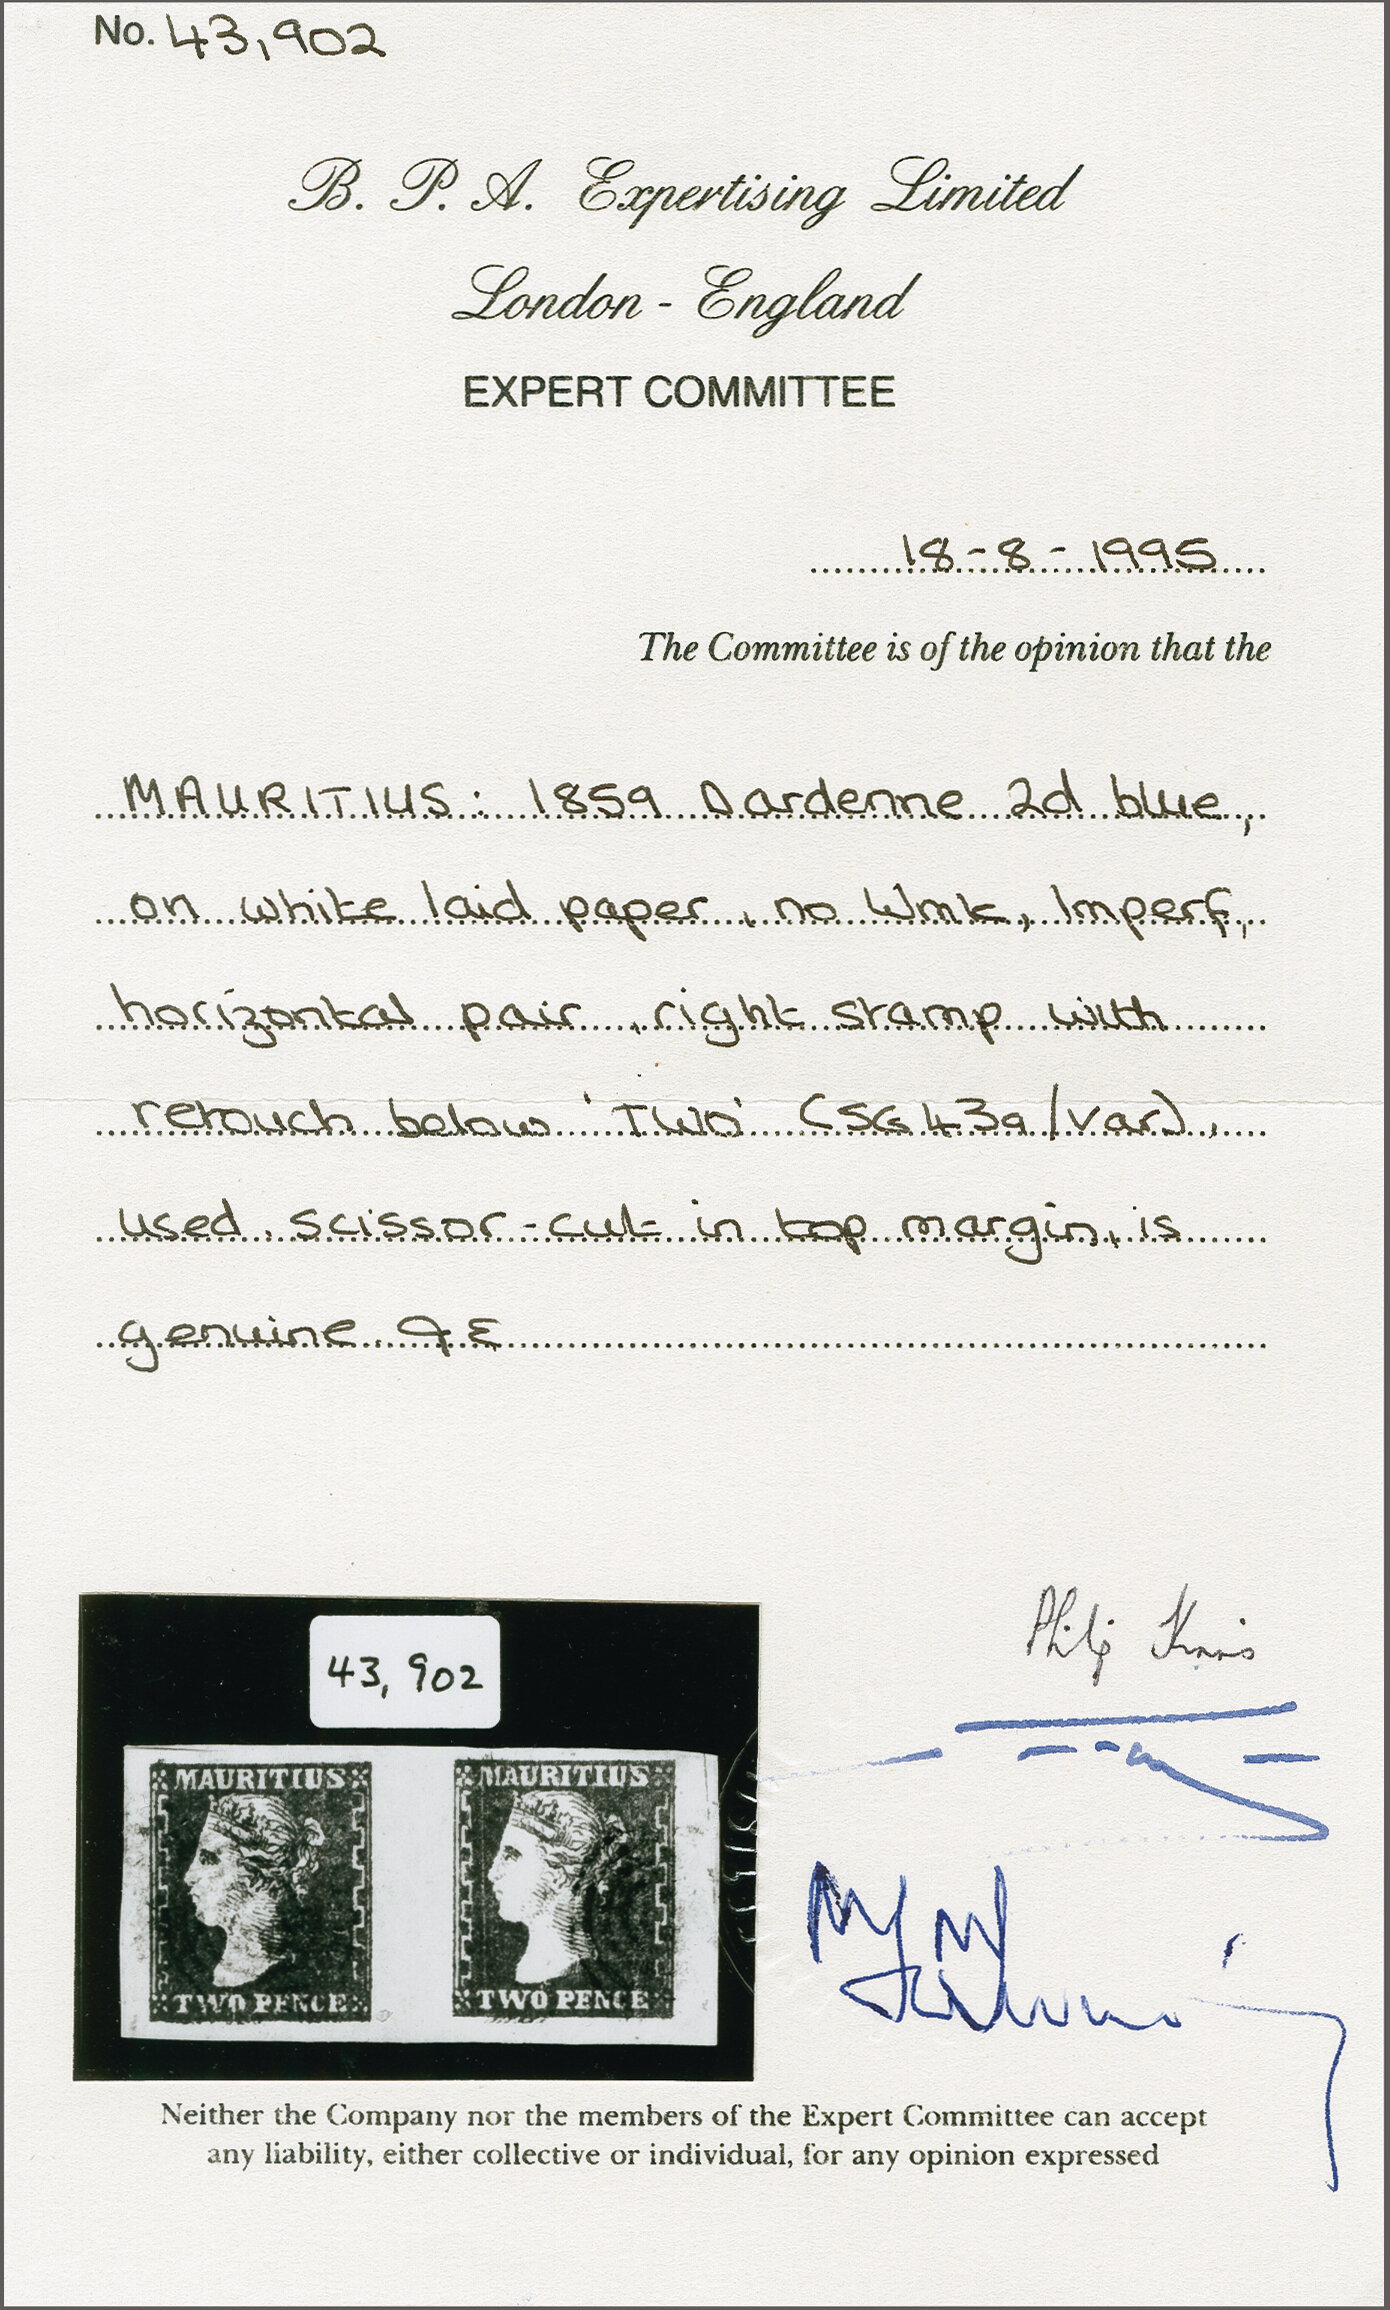 No. 43,902
B. P. A. Expertising Limited
London - England
EXPERT COMMITTEE
18-8-1995
The Committee is of the opinion that the
MAURITIUS: 1859 Dardenne 2d blue,
on white laid paper, no Wmk, Imperf,
horizontal pair, right stamp with
retouch below 'TWO' (SG 43a/var),
used, scissor-cut in top margin, is
genuine.
43, 902
MAURITIUS MAURITIUS
TWO PENCE TWO PENCE
Philip
Neither the Company nor the members of the Expert Committee can accept
any liability, either collective or individual, for any opinion expressed